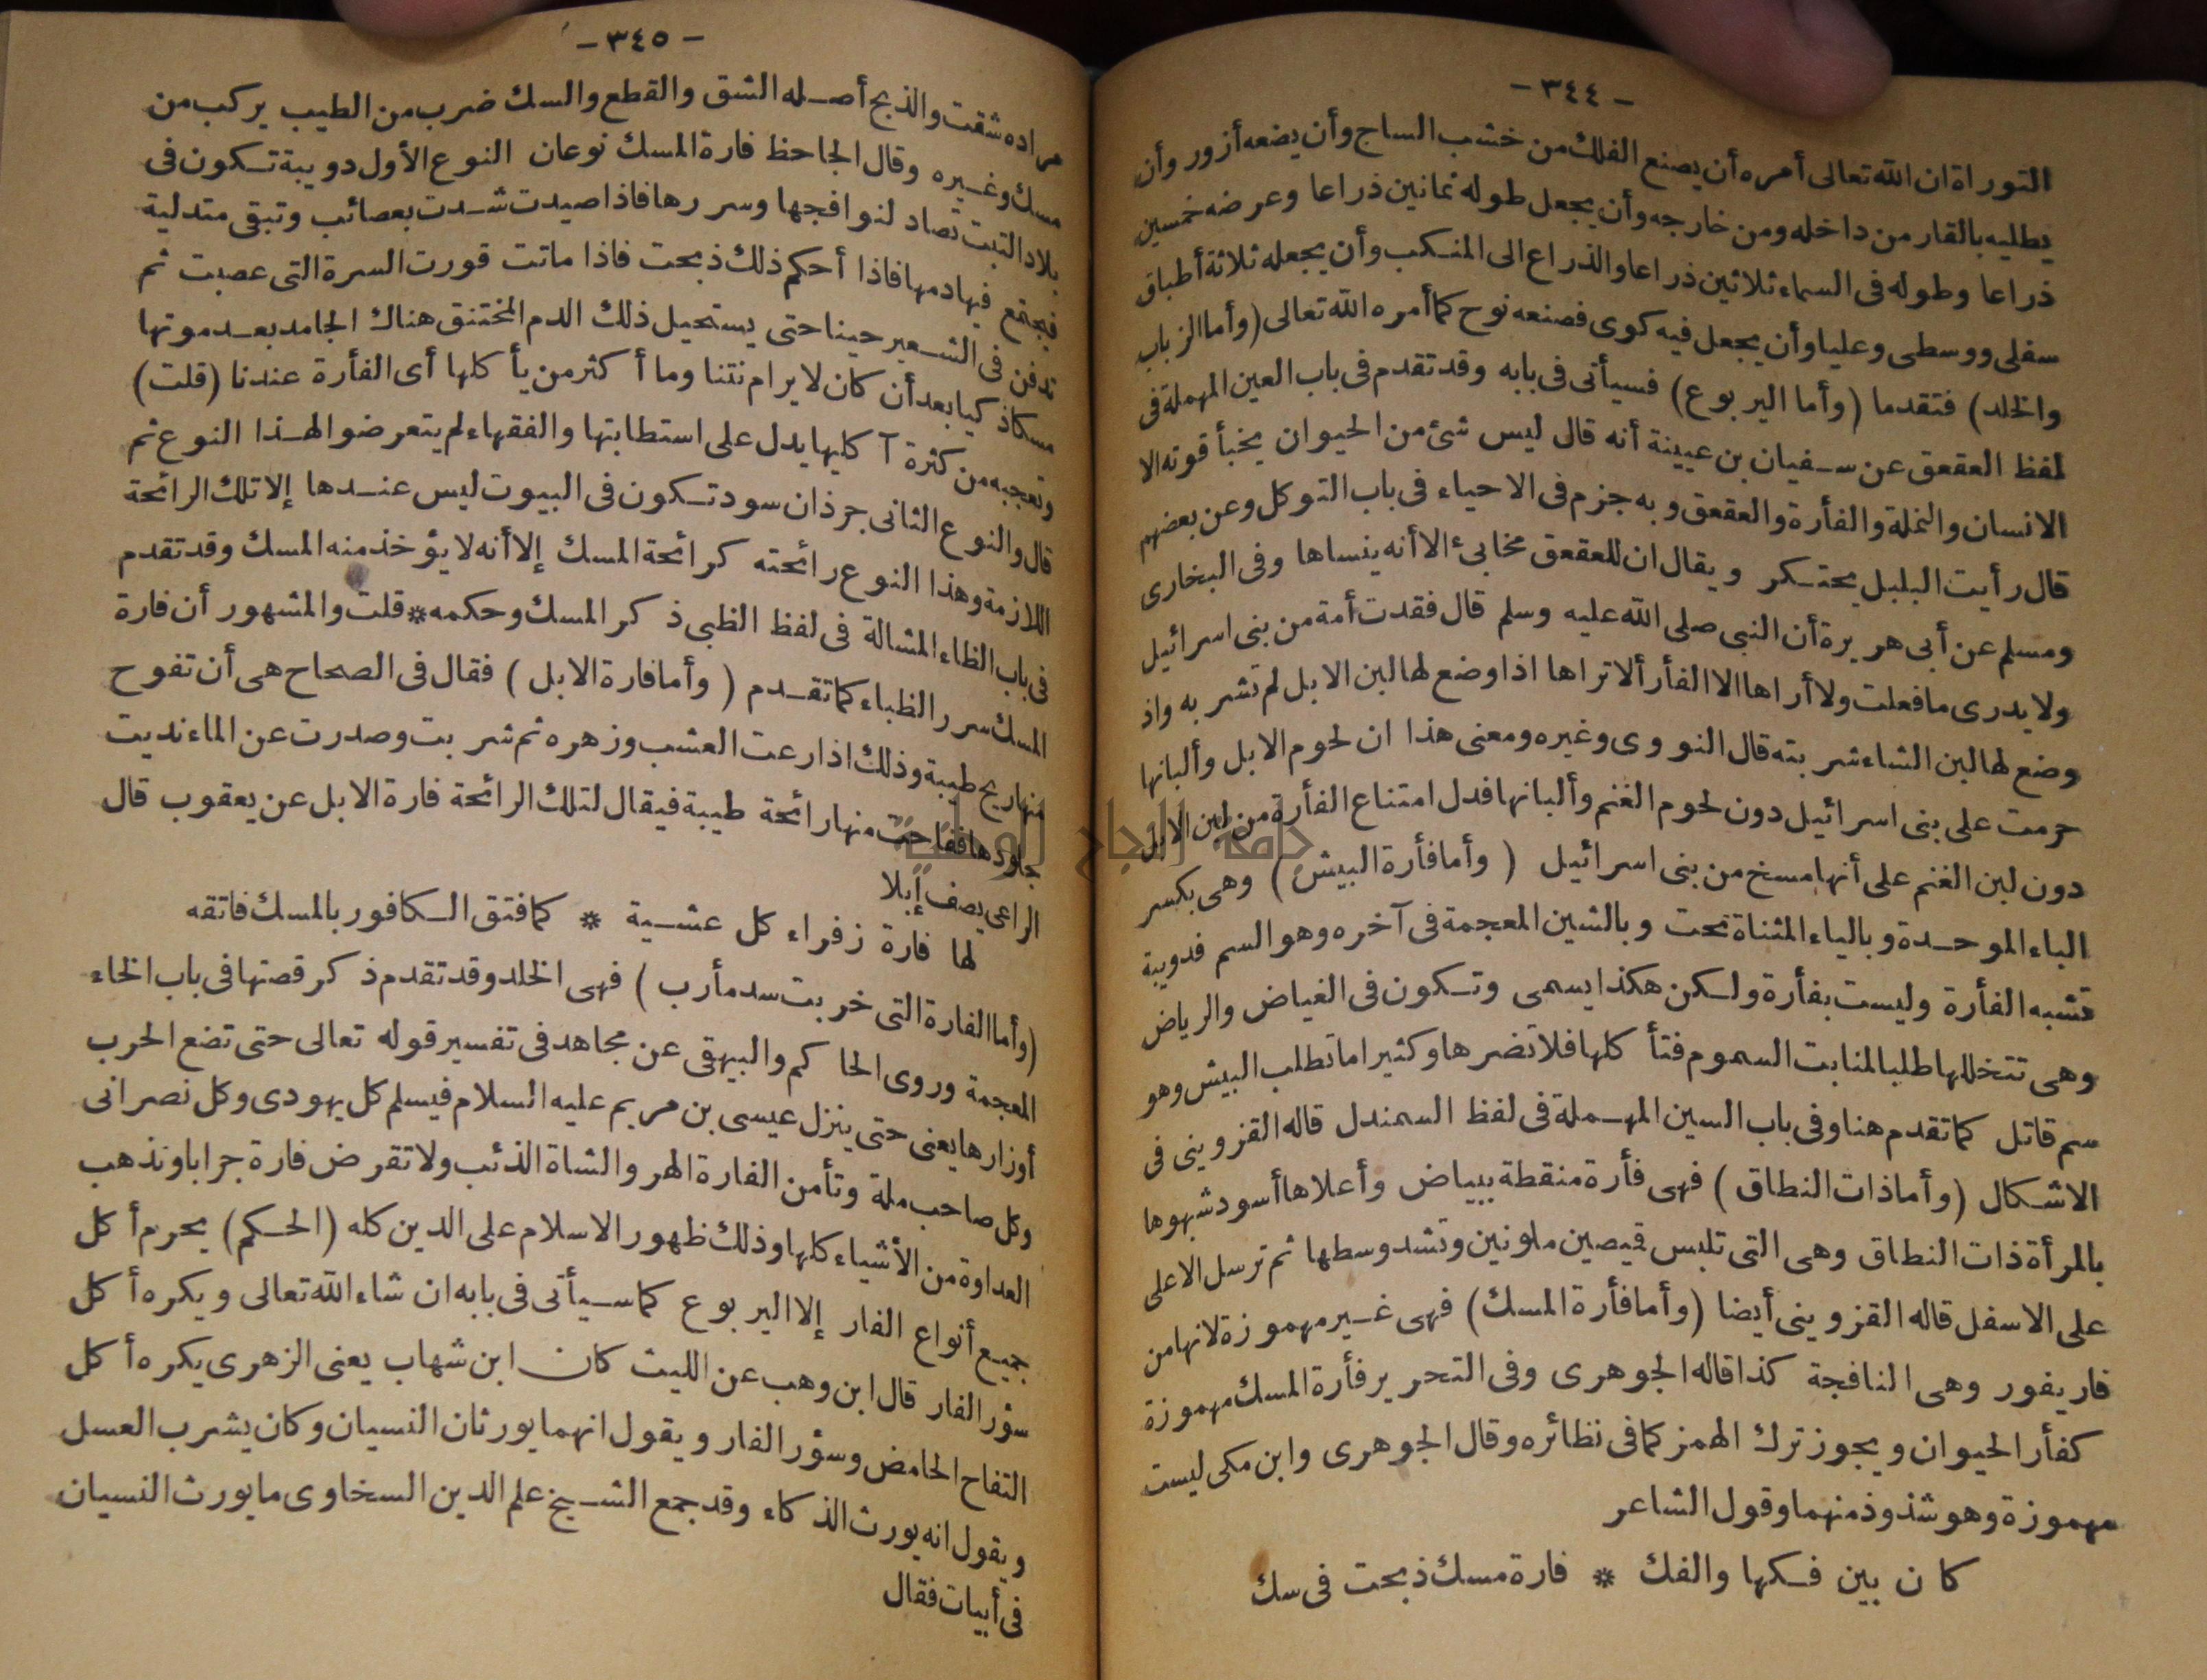 - ٣٤٤ -
التوراة ان الله تعالى أمره أن يصنع الفلك من خشب الساج وأن يضعه أزور وأن
يطليه بالقار من داخله ومن خارجه وأن يجعل طوله ثمانين ذراعا وعرضه خمسين
ذراعا وطوله فى السماء ثلاثين ذراعا والذراع الى المنكب وأن يجعله ثلاثة أطباق
سفلى ووسطى وعليا وأن يجعل فيه كوى فصنعه نوح كما أمره الله تعالى (وأما الزباب
والخلد) فتقدما (وأما اليربوع) فسيأتى فى بابه وقد تقدم فى باب العين المهملة فى
لفظ العقعق عن سفيان بن عيينة أنه قال ليس شئ من الحيوان يخبأ قوته الا
الانسان والنملة والفأرة والعقعق وبه جزم فى الاحياء فى باب التوكل وعن بعضهم
قال رأيت البلبل يحتكر ويقال ان للعقعق مخابئ الا أنه ينساها وفى البخارى
ومسلم عن أبى هريرة أن النبى صلى الله عليه وسلم قال فقدت أمة من بنى اسرائيل
ولا يدرى ما فعلت ولا أراها الا الفأر ألا تراها اذا وضع لها لبن الابل لم تشربه واذ
وضع لها لبن الشاء شربته قال النووى وغيره ومعنى هذا ان لحوم الابل وألبانها
حرمت على بنى اسرائيل دون لحوم الغنم وألبانها فدل امتناع الفأرة من لبن الابل
دون لبن الغنم على أنها مسخ من بنى اسرائيل (وأما فأرة البيش) وهى بكسر
الباء الموحدة وبالياء المثناة تحت وبالشين المعجمة فى آخره وهو السم فدويبة
تشبه الفأرة وليست بفأرة ولكن هكذا يسمى وتكون فى الغياض والرياض
وهى تتخللها طلبا لمنابت السموم فتأكلها فلا تضرها وكثيرا ما تطلب البيش وهو
سم قاتل كما تقدم هنا وفى باب السين المهملة فى لفظ السمندل قاله القزوينى فى
الاشكال (وأما ذات النطاق) فهى فأرة منقطة ببياض وأعلاها أسود شبهوها
بالمرأة ذات النطاق وهى التى تلبس قميصين ملونين وتشد وسطها ثم ترسل الاعلى
على الاسفل قاله القزوينى أيضا (وأما فأرة المسك) فهى غير مهموزة لانها من
فار يفور وهى النافجة كذا قاله الجوهرى وفى التحرير فأرة المسك مهموزة
كفأر الحيوان ويجوز ترك الهمز كما فى نظائره وقال الجوهرى وابن مكى ليست
مهموزة وهو شذوذ منهما وقول الشاعر
كان بين فكها والفك * فارة مسك ذبحت فى سك
- ٣٤٥ -
مراده شقت والذبح أصله الشق والقطع والسك ضرب من الطيب يركب من
مسك وغيره وقال الجاحظ فارة المسك نوعان النوع الأول دويبة تكون فى
بلاد التبت تصاد لنوافجها وسررها فاذا صيدت شدت بعصائب وتبقى متدلية
فيجتمع فيها دمها فاذا أحكم ذلك ذبحت فاذا ماتت قورت السرة التى عصبت ثم
تدفن فى الشعير حينا حتى يستحيل ذلك الدم المختنق هناك الجامد بعد موتها
مسكا ذكيا بعد أن كان لا يرام نتنا وما أكثر من يأكلها أى الفأرة عندنا (قلت)
وتعجبه من كثرة آكليها يدل على استطابتها والفقهاء لم يتعرضوا لهذا النوع ثم
قال والنوع الثانى جرذان سود تكون فى البيوت ليس عندها إلا تلك الرائحة
اللازمة وهذا النوع رائحته كرائحة المسك إلا أنه لا يؤخذ منه المسك وقد تقدم
فى باب الظاء المشالة فى لفظ الظبى ذكر المسك وحكمه * قلت والمشهور أن فارة
المسك سرر الظباء كما تقدم (وأما فارة الابل) فقال فى الصحاح هى أن تفوح
منها ريح طيبة وذلك اذا رعت العشب وزهره ثم شربت وصدرت عن الماء نديت
جلودها ففاحت منها رائحة طيبة فيقال لتلك الرائحة فارة الابل عن يعقوب قال
الراعى يصف إبلا
لها فارة زفراء كل عشية * كما فتق الكافور بالمسك فاتقه
(وأما الفارة التى خربت سد مأرب) فهى الخلد وقد تقدم ذكر قصتها فى باب الخاء
المعجمة وروى الحاكم والبيهقى عن مجاهد فى تفسير قوله تعالى حتى تضع الحرب
أوزارها يعنى حتى ينزل عيسى بن مريم عليه السلام فيسلم كل يهودى وكل نصرانى
وكل صاحب ملة وتأمن الفارة الهر والشاة الذئب ولا تقرض فارة جرابا وتذهب
العداوة من الأشياء كلها وذلك ظهور الاسلام على الدين كله (الحكم) يحرم أكل
جميع أنواع الفار إلا اليربوع كما سيأتى فى بابه ان شاء الله تعالى ويكره أكل
سؤر الفار قال ابن وهب عن الليث كان ابن شهاب يعنى الزهرى يكره أكل
التفاح الحامض وسؤر الفار ويقول انهما يورثان النسيان وكان يشرب العسل
ويقول انه يورث الذكاء وقد جمع الشيخ علم الدين السخاوى ما يورث النسيان
فى أبيات فقال
جامعة النجاح الوطنية